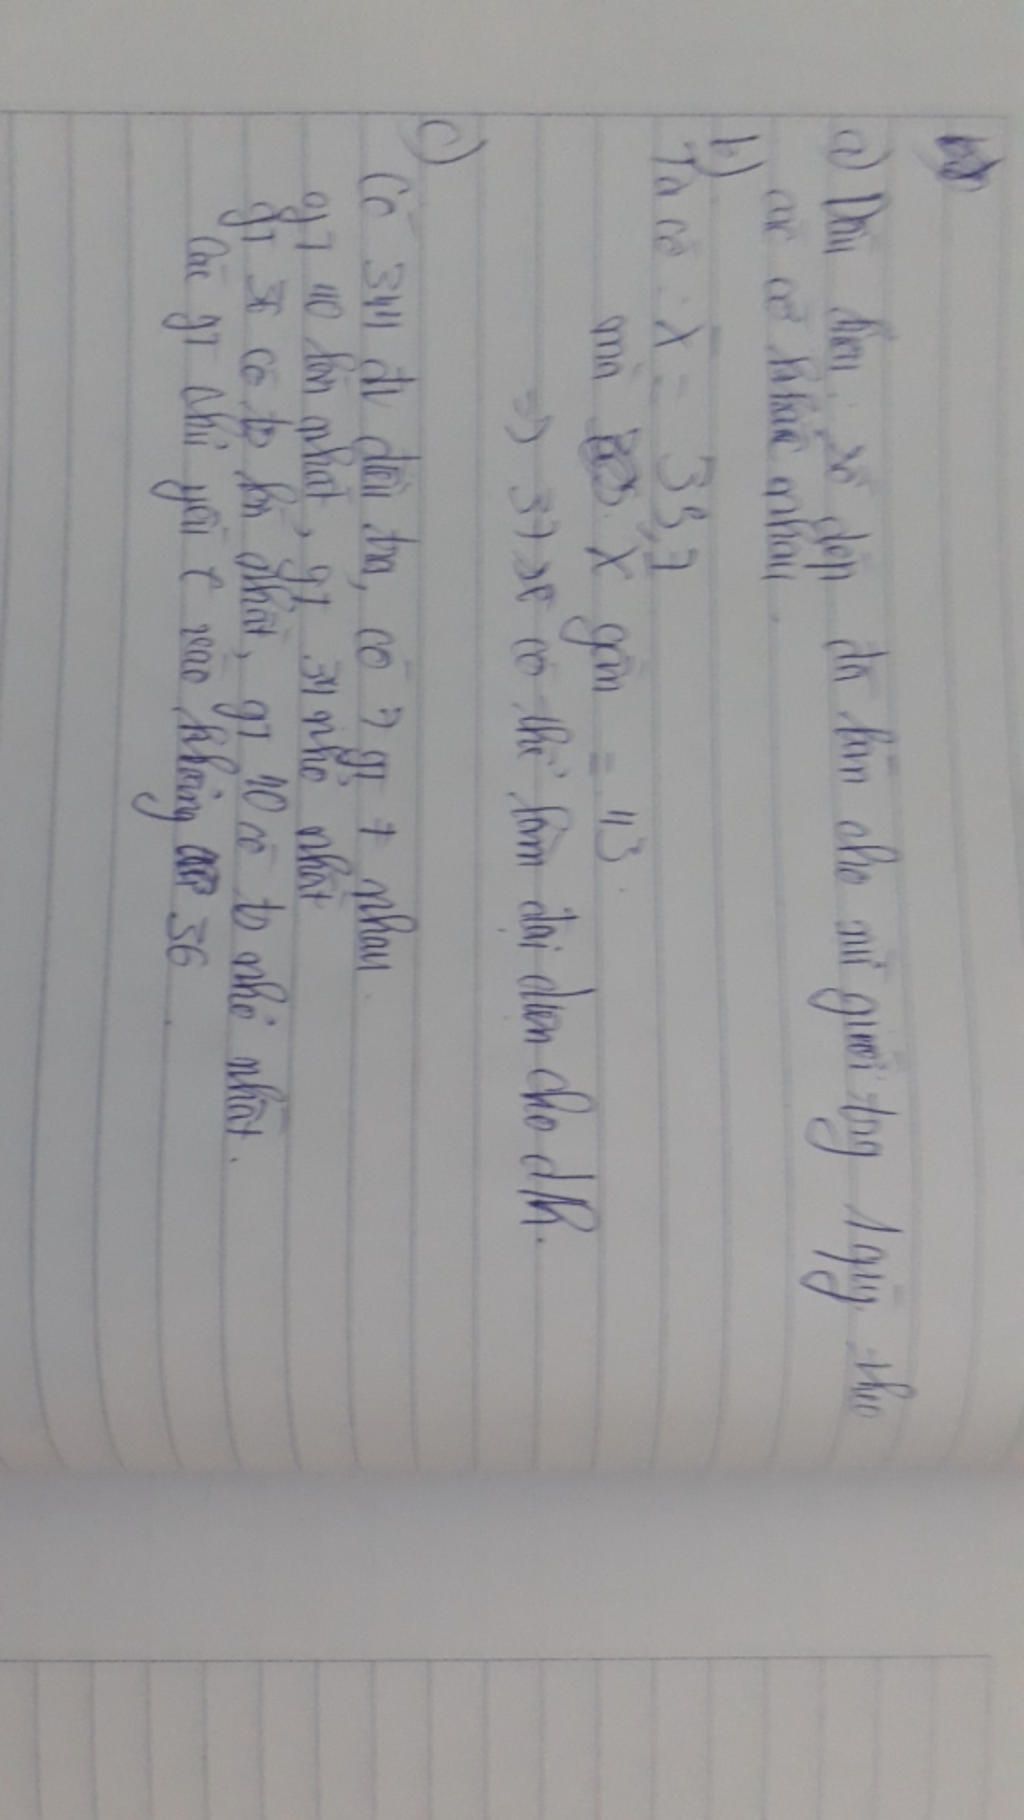 a) Dấu hiệu: số dép đã bán cho nữ giới trong 1 quý theo
các cỡ khác nhau.
b)
Ta có: X = 35,7
mà X gần = 43.
=> 37 có thể làm đại diện cho dh.
c)
Có 344 đv điều tra, có 7 gt ≠ nhau.
gt 40 lớn nhất, gt 34 nhỏ nhất
gt 36 có ts lớn nhất, gt 40 có ts nhỏ nhất.
Các gt chủ yếu t vào khoảng 36.